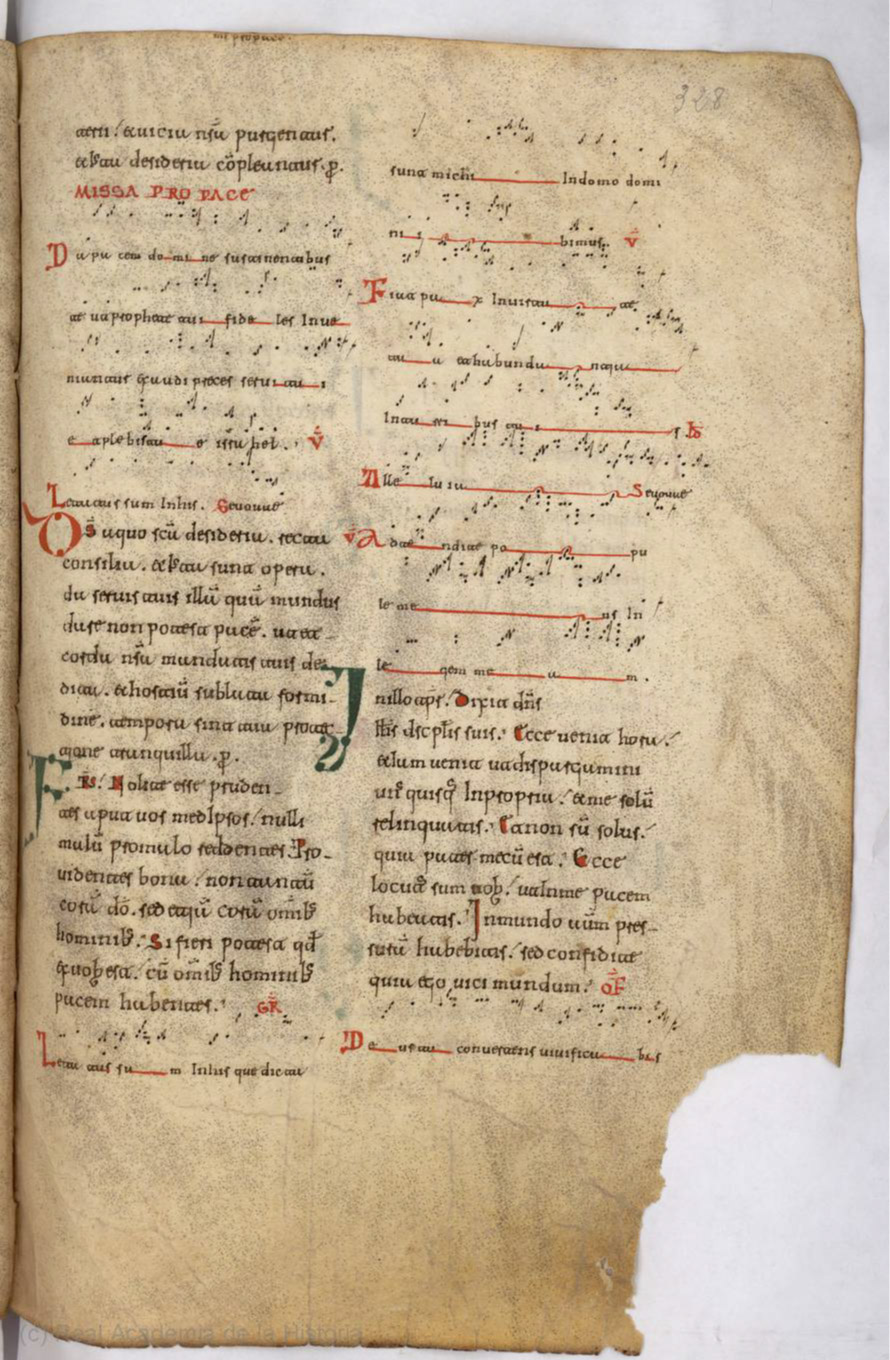 mi propace
328
aeni. & uiciu nr̄a purgentaur.
& r̄ta desideriu cōpleantaur. p̄.
MISSA PRO PACE
Da pacem domine sustinentibus
te ut prophete tui fideles Inue
niantur exaudi preces serui tui
et plebis tue isrl̄. V̄
Letatus sum Inhis. Seuouae
Ds̄ a quo sc̄a desideria. recta
consilia. & iusta sunt opera.
da seruis tuis illā quā mundus
dare non potest pacē. ut et
corda nr̄a mandatis tuis de
dita. & hostiū sublata formi
dine. tempora sint tua protec
tione tranquilla. p̄.
FRS. Nolite esse pruden
tes aput uos metIpsos. nulli
malū promalo reddentes. Pro
uidentes bona. non tantū
corā dō. sed etiā corā omib;
hominib;. Si fieri potest qd̄
ex uob; est. cū omib; hominib;
pacem habentes. GR̄
Letatus sum Inhis que dicta
sunt michi Indomo domi
ni ibimus. V̄
Fiat pax Inuirtute
tua et habundantia
Inturribus tuis
Alleluia Seuouae
V̄ Adtendite po pu
le meus In
legem meam.
Inillo tēpr. Dixit dn̄s
ih̄s discipl̄is suis. Ecce uenit hora.
& Iam uenit ut dispargamini
unusquisq; Inpropria. & me solū
relinquatis. Et non sū solus.
quia pater mecū est. Ecce
locutus sum uob;. ut Inme pacem
habeatis. Inmundo uūm pres
surā habebitis. sed confidite
quia ego uici mundum. OF̄
Deus tu conuertens uiuificabis
(c) Real Academia de la Historia